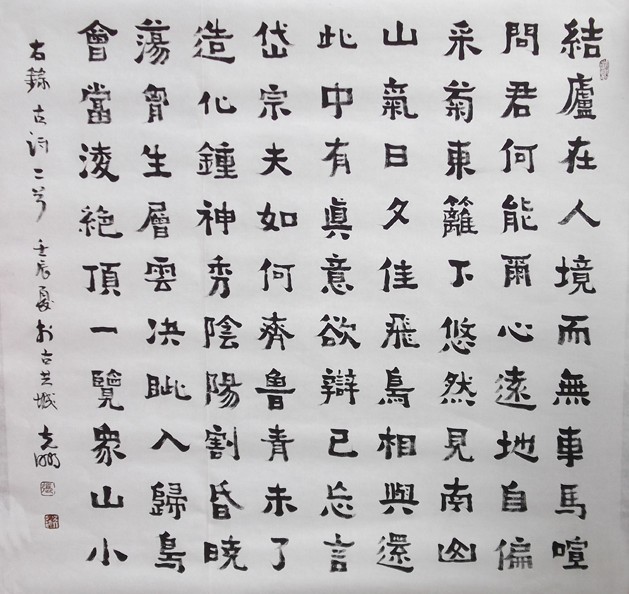 結廬在人境而無車馬喧
問君何能爾心遠地自偏
采菊東籬下悠然見南山
山氣日夕佳飛鳥相與還
此中有真意欲辯已忘言
岱宗夫如何齊魯青未了
造化鍾神秀陰陽割昏曉
蕩胷生層雲決眦入歸鳥
會當淩絕頂一覽衆山小
右錄古詩二首壬辰夏於古